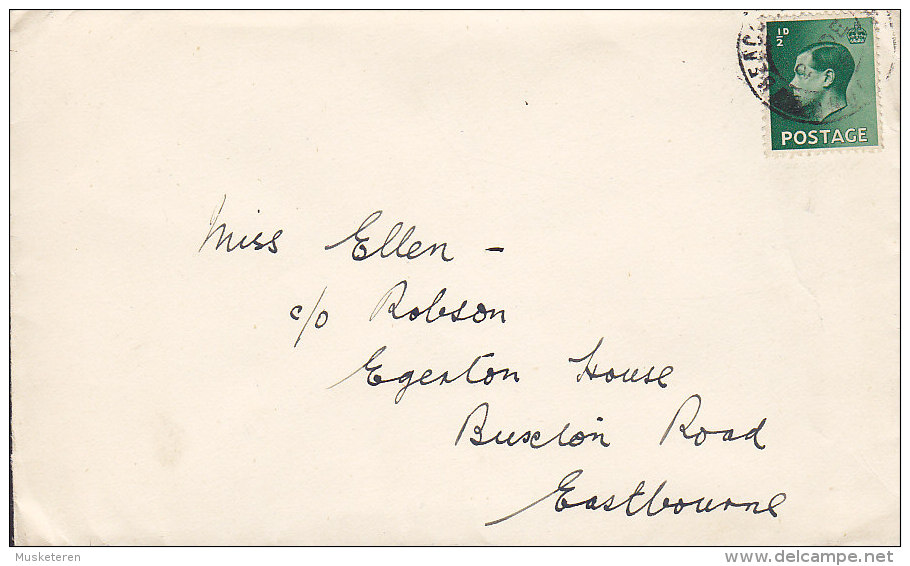 ½D
POSTAGE
Miss Ellen -
c/o Robson
Egerton House
Buxton Road
Eastbourne
Musketeren
delcampe.net